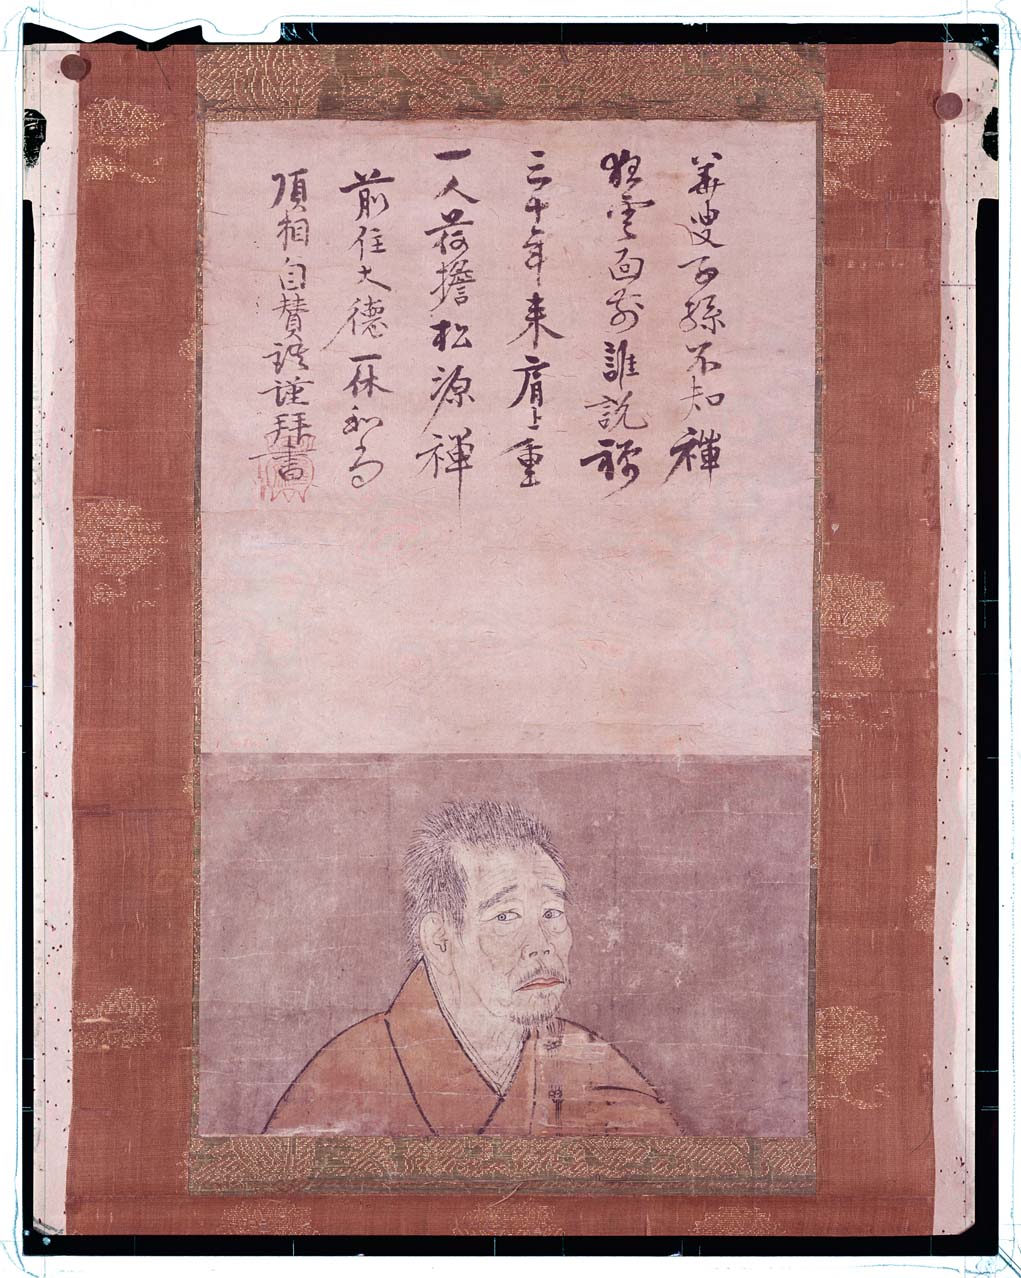 華叟子孫不知禅
狂雲面前誰説禅
三十年来肩上重
一人荷擔松源禅
前住大徳一休和尚
頂相自賛議謹拝書